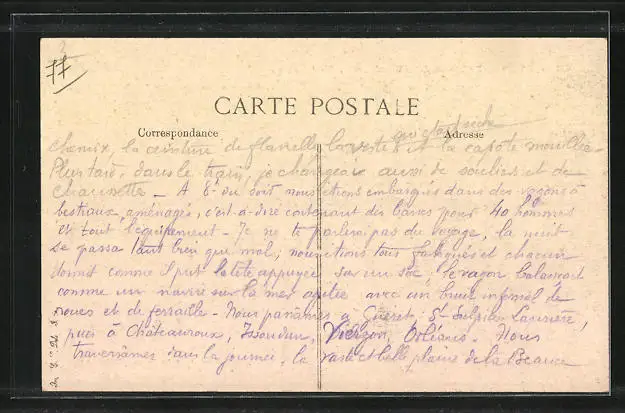 77
CARTE POSTALE
Correspondance
Adresse
qui était sèche
chemise, la ceinture de flanelle la veste et la capote mouillée
Plus tard, dans le train, je changeai aussi de souliers et de
chaussettes - A 8h du soir nous étions embarqués dans des wagons à
bestiaux, aménagés, c'est-à-dire contenant des bancs pour 40 hommes
et tout l'équipement - Je ne te parlerai pas du voyage, la nuit
se passa tant bien que mal, nous étions tous fatigués et chacun
dormit comme il put la tête appuyée sur un sac, le wagon balançant
comme un navire sur la mer agitée avec un bruit infernal de
roues et de ferraille - Nous passâmes à Guéret, St Sulpice Laurière,
puis à Châteauroux, Issoudun, Vierzon, Orléans. Nous
traversâmes dans la journée, la vaste et belle plaine de la Beauce